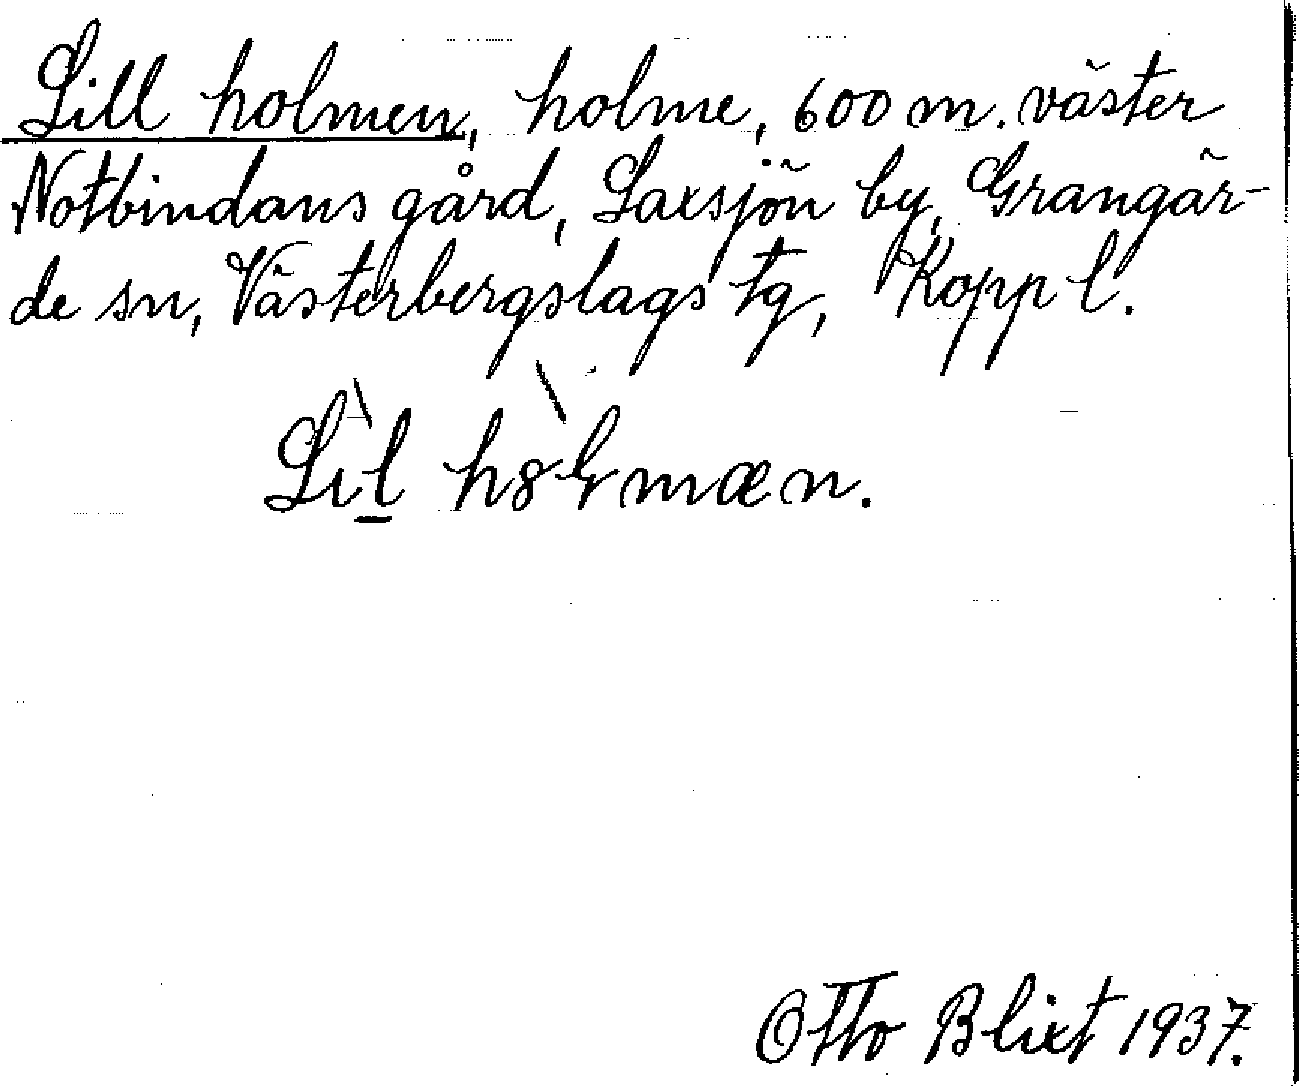 Lill holmen, holme, 600 m. väster
Notbindans gård, Laxsjön by, Grangär-
de sn, Västerbergslags tg, Kopp l.
Lìl hȣ̀ɽmæn.
Otto Blixt 1937.